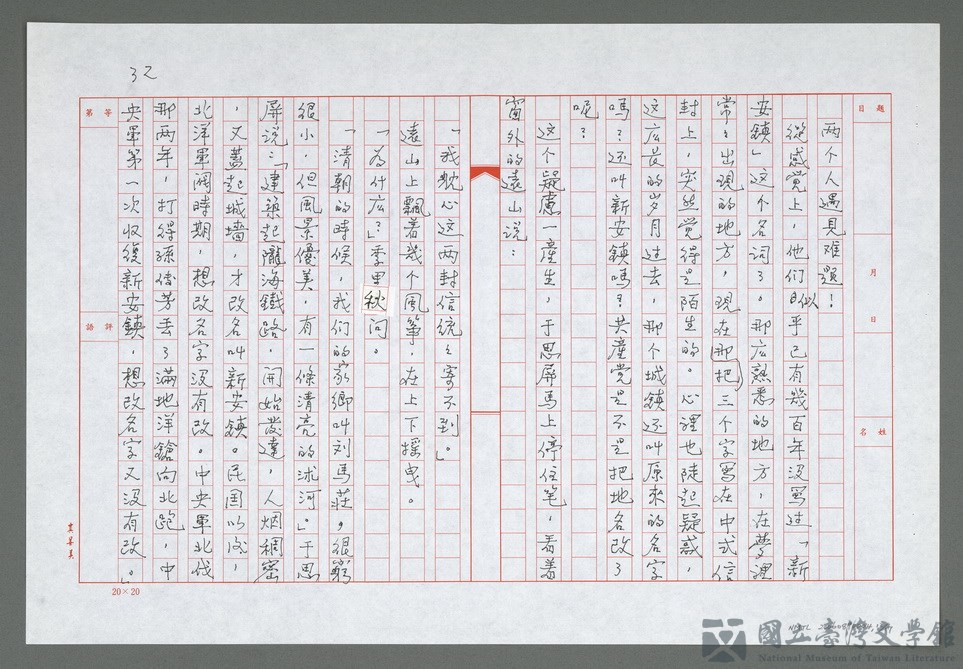 32
題目
月
日
姓名
等第
評語
两个人遇見难題！
從感觉上，他们似乎已有幾百年没写过「新
安鎮」这个名词了。那広熟悉的地方，在夢裡
常々出現的地方，現在那把三个字写在中式信
封上，突然觉得是陌生的。心裡也陡起疑惑，
这広長的岁月过去，那个城鎮还叫原來的名字
嗎？还叫新安鎮嗎？共產党是不是把地名改了
呢？
这个疑慮一產生，于思屏馬上停住笔，看着
窗外的遠山说：
「我躭心这两封信统々寄不到。」
遠山上飄着幾个風箏，在上下摇曳。
「為什広？」季里秋问。
「清朝的時候，我们的家鄉叫刘馬莊，很窮
很小，但風景優美，有一條清亮的沭河。」于思
屏说：「建築起隴海鐵路，開始發達，人烟稠密
，又蓋起城墻，才改名叫新安鎮。民国以后，
北洋軍阀時期，想改名字没有改。中央軍北伐
那两年，打得孫传芳丢了滿地洋鎗向北跑，中
央軍第一次收復新安鎮，想改名字又没有改。」
20×20
國立臺灣文學館
National Museum of Taiwan Literature